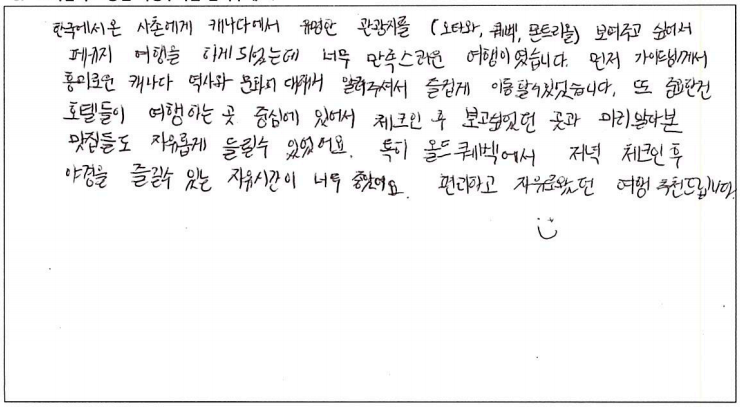 한국에서온 사촌에게 캐나다에서 유명한 관광지를 (오타와, 퀘벡, 몬트리올) 보여주고 싶어서
패키지 여행을 하게 되었는데 너무 만족스러운 여행이였습니다. 먼저 가이드님께서
흥미로운 캐나다 역사와 문화에 대해서 알려주셔서 즐겁게 이동할수있었습니다. 또 좋았던건
호텔들이 여행하는 곳 중심에 있어서 체크인 후 보고싶었던 곳과 미리알아본
맛집들도 자유롭게 들릴수 있었어요. 특히 올드퀘벡에서 저녁 체크인 후
야경을 즐길수 있는 자유시간이 너무 좋았어요. 편리하고 자유로왔던 여행 추천드립니다.